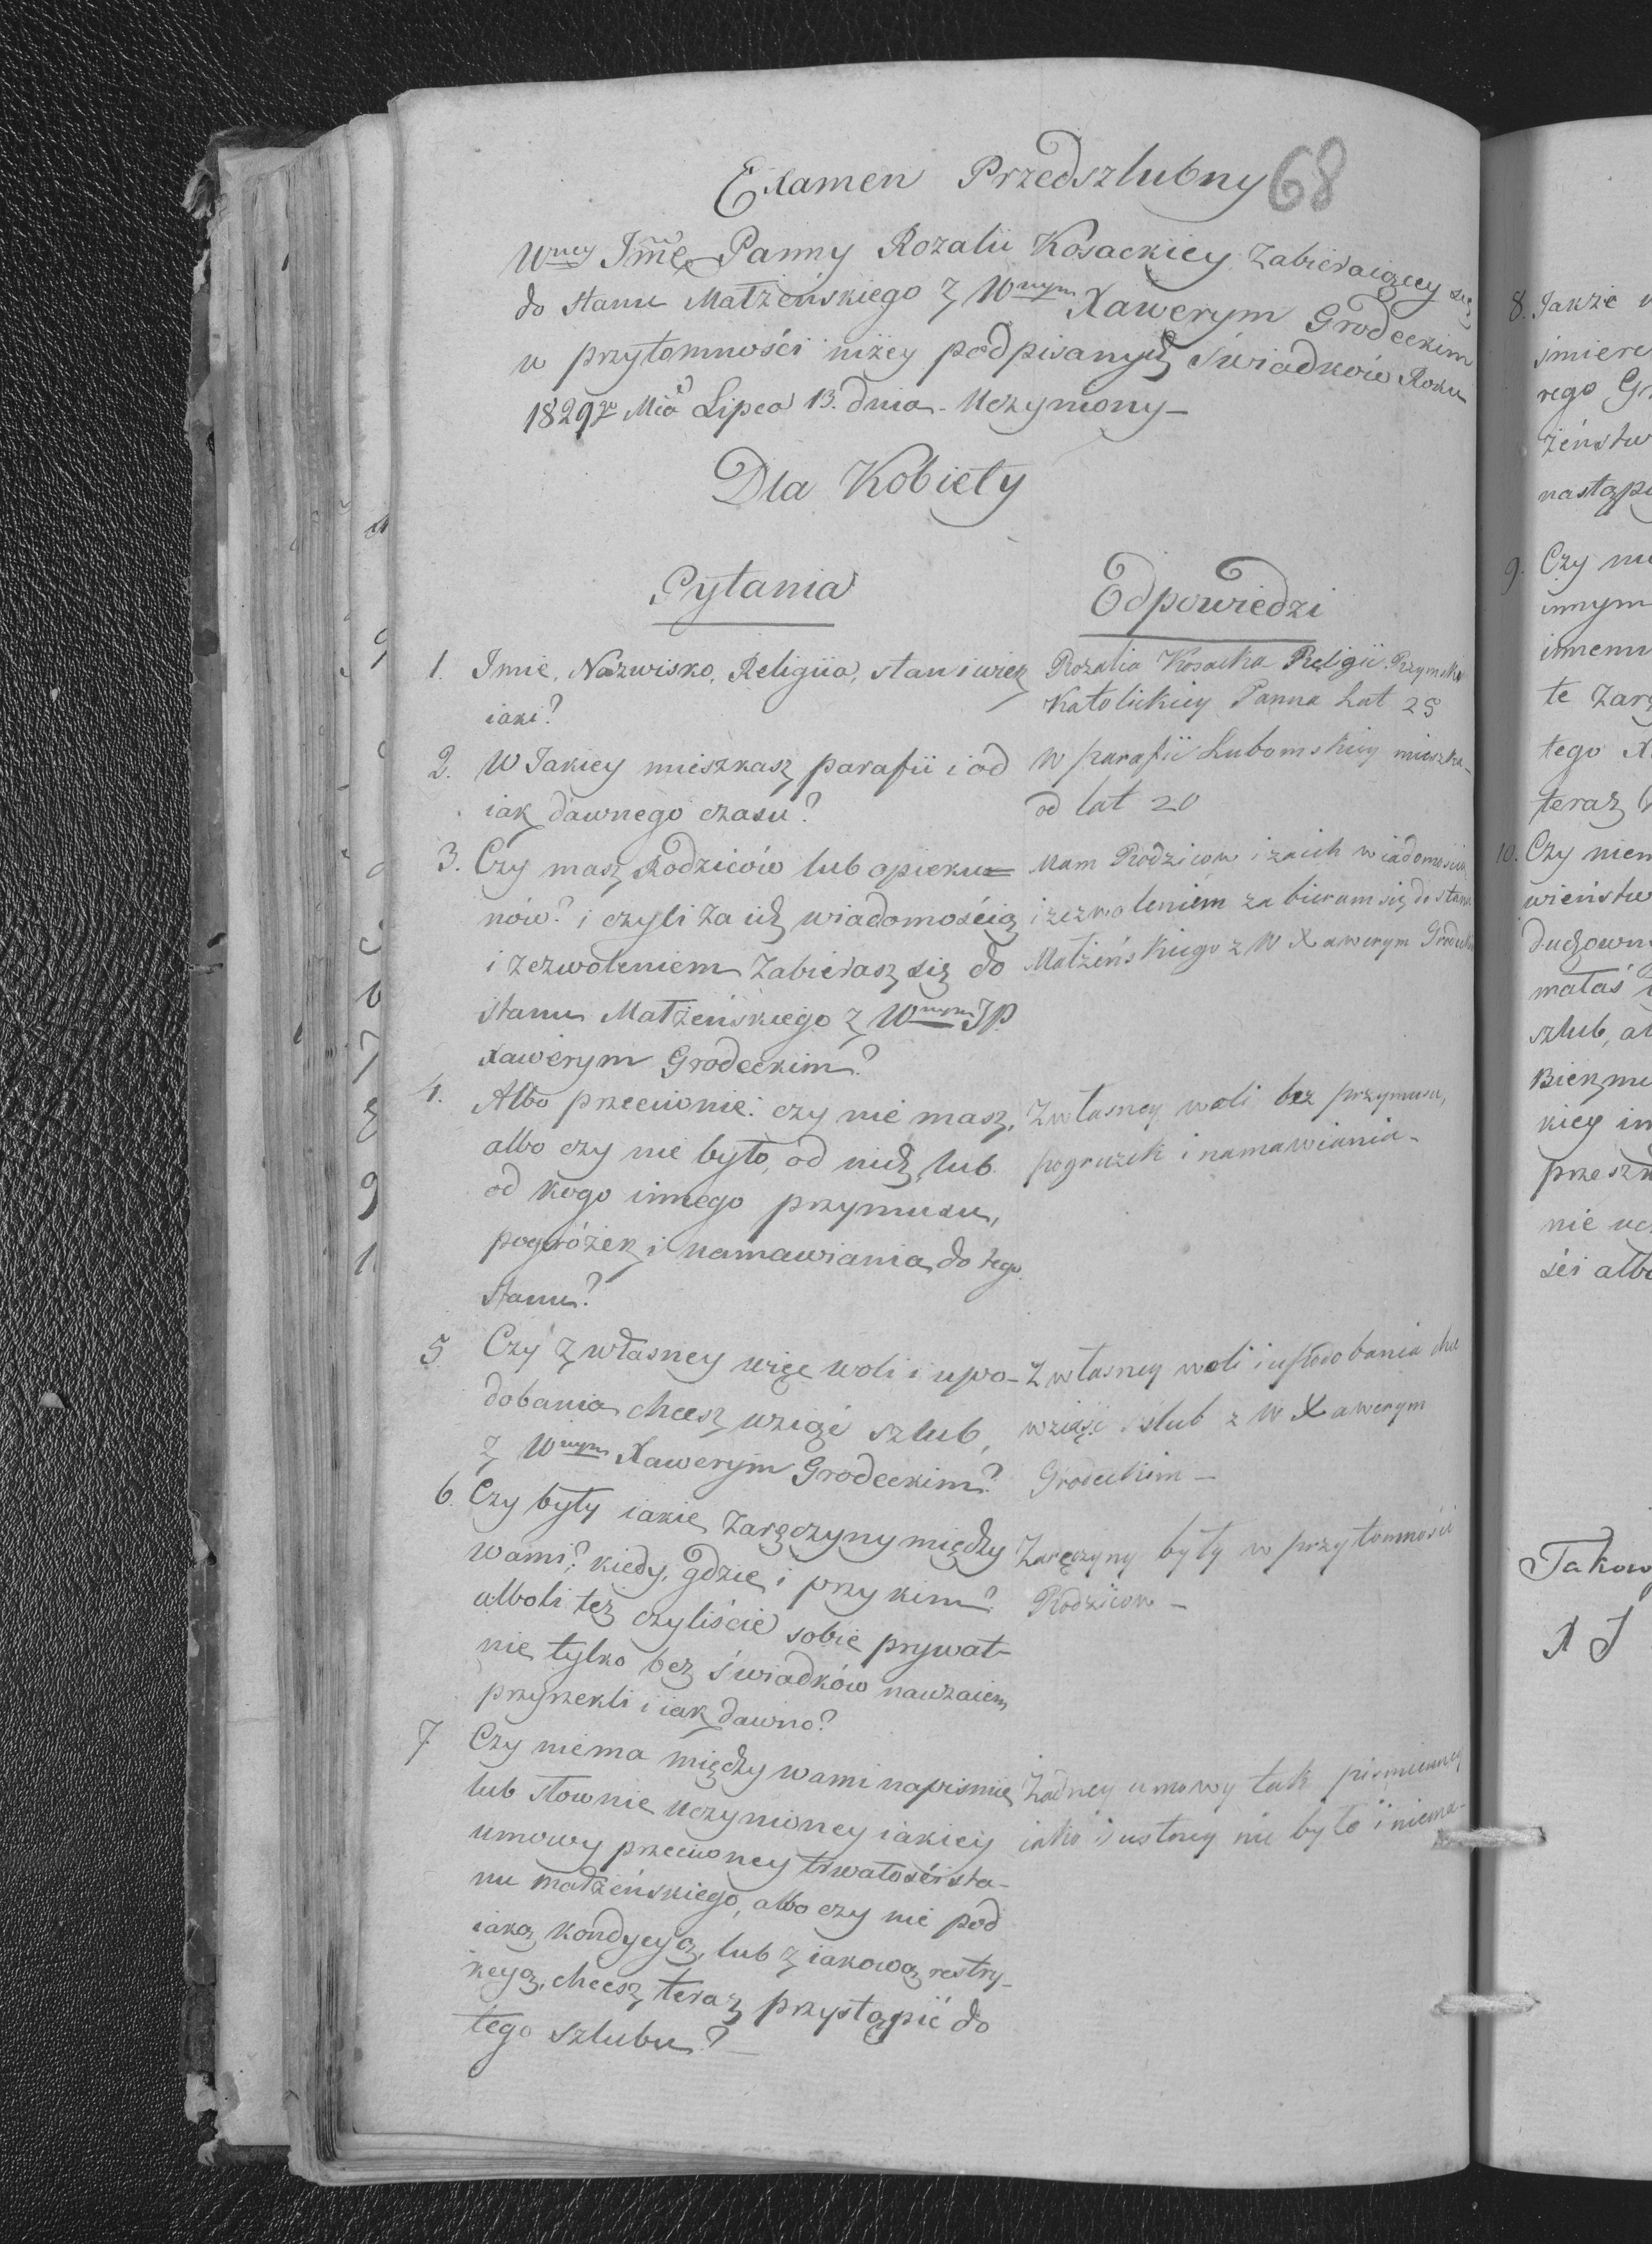 Examen Przedszlubny 68
Wney Jmę Panny Rozalii Kosackiey Zabieraiącey się
do stanu Małżeńskiego z Wnym Xawerym Grodeckim
w przytomności niżey podpisanych Świadków Roku
1829go Mca Lipca 13. dnia - Uczyniony -
Dla Kobiety
Pytania
1. Imie, Nazwisko, Religiia, stan i wiek
iaki?
2. W Jakiey mieszkasz parafii i od
iak dawnego czasu?
3. Czy masz Rodziców lub opieku=
nów? i czyli za ich wiadomością
i zezwoleniem Zabierasz się do
stanu Małżeńskiego z Wnym JP.
Xawerym Grodeckim?
4. Albo przeciwnie: czy nie masz,
albo czy nie było, od nich, lub
od kogo innego przymusu,
pogróżek i namawiania do tego
stanu?
5. Czy z własney więc woli i upo-
dobania chcesz wziąć szlub,
z Wnym Xawerym Grodeckim?
6. Czy były iakie zaręczyny między
wami? kiedy, gdzie i przy kim?
alboli też czyliście sobie prywat-
nie tylko bez świadków nawzaiem
przyrzekli i iak dawno?
7. Czy niema między wami napismie
lub słownie uczynioney iakiey
umowy przeciwney trwałości sta-
nu małżeńskiego, albo czy nie pod
iaką kondycyą, lub z iakową restry-
kcyą, chcesz teraz przystąpić do
tego szlubu? -
Odpowiedzi
Rozalia Kosacka Religii Rzymsko
Katolickiey Panna Lat 25
W parafii Lubomskiey mieszka-
od lat 20
Mam Rodzicow i zaich wiadomością
i zezwoleniem zabieram się do stanu
Małżeńskiego z W Xawerym
Zwłasney woli bez przymusu,
pogruzek i namawiania -
Z własney woli i upodobania chce
wziąść szlub z W Xawerym
Grodeckim -
Zaręczyny były w przytomności
Rodzicow -
Żadney umowy tak pismienney
iako i ustney nie było i niema -
8. Jakże
rego
żeństw
nastąpi
9. Czy
innym
innemu
te
tego
teraz
10. Czy
wieństw
duchown
małaś
szlub,
kiey
nie
ści albo
Takow